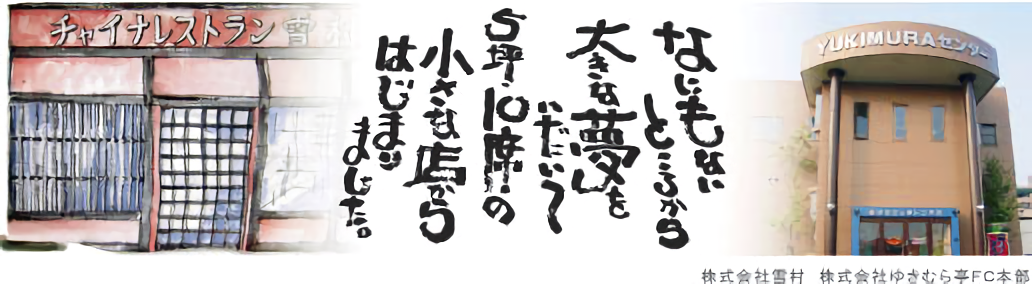 チャイナレストラン雪村
なにもない
ところから
大きな夢を
いだいて
5坪・10席の
小さな店から
はじまり
ました。
YUKIMURAセンター
株式会社雪村 株式会社ゆきむら亭FC本部